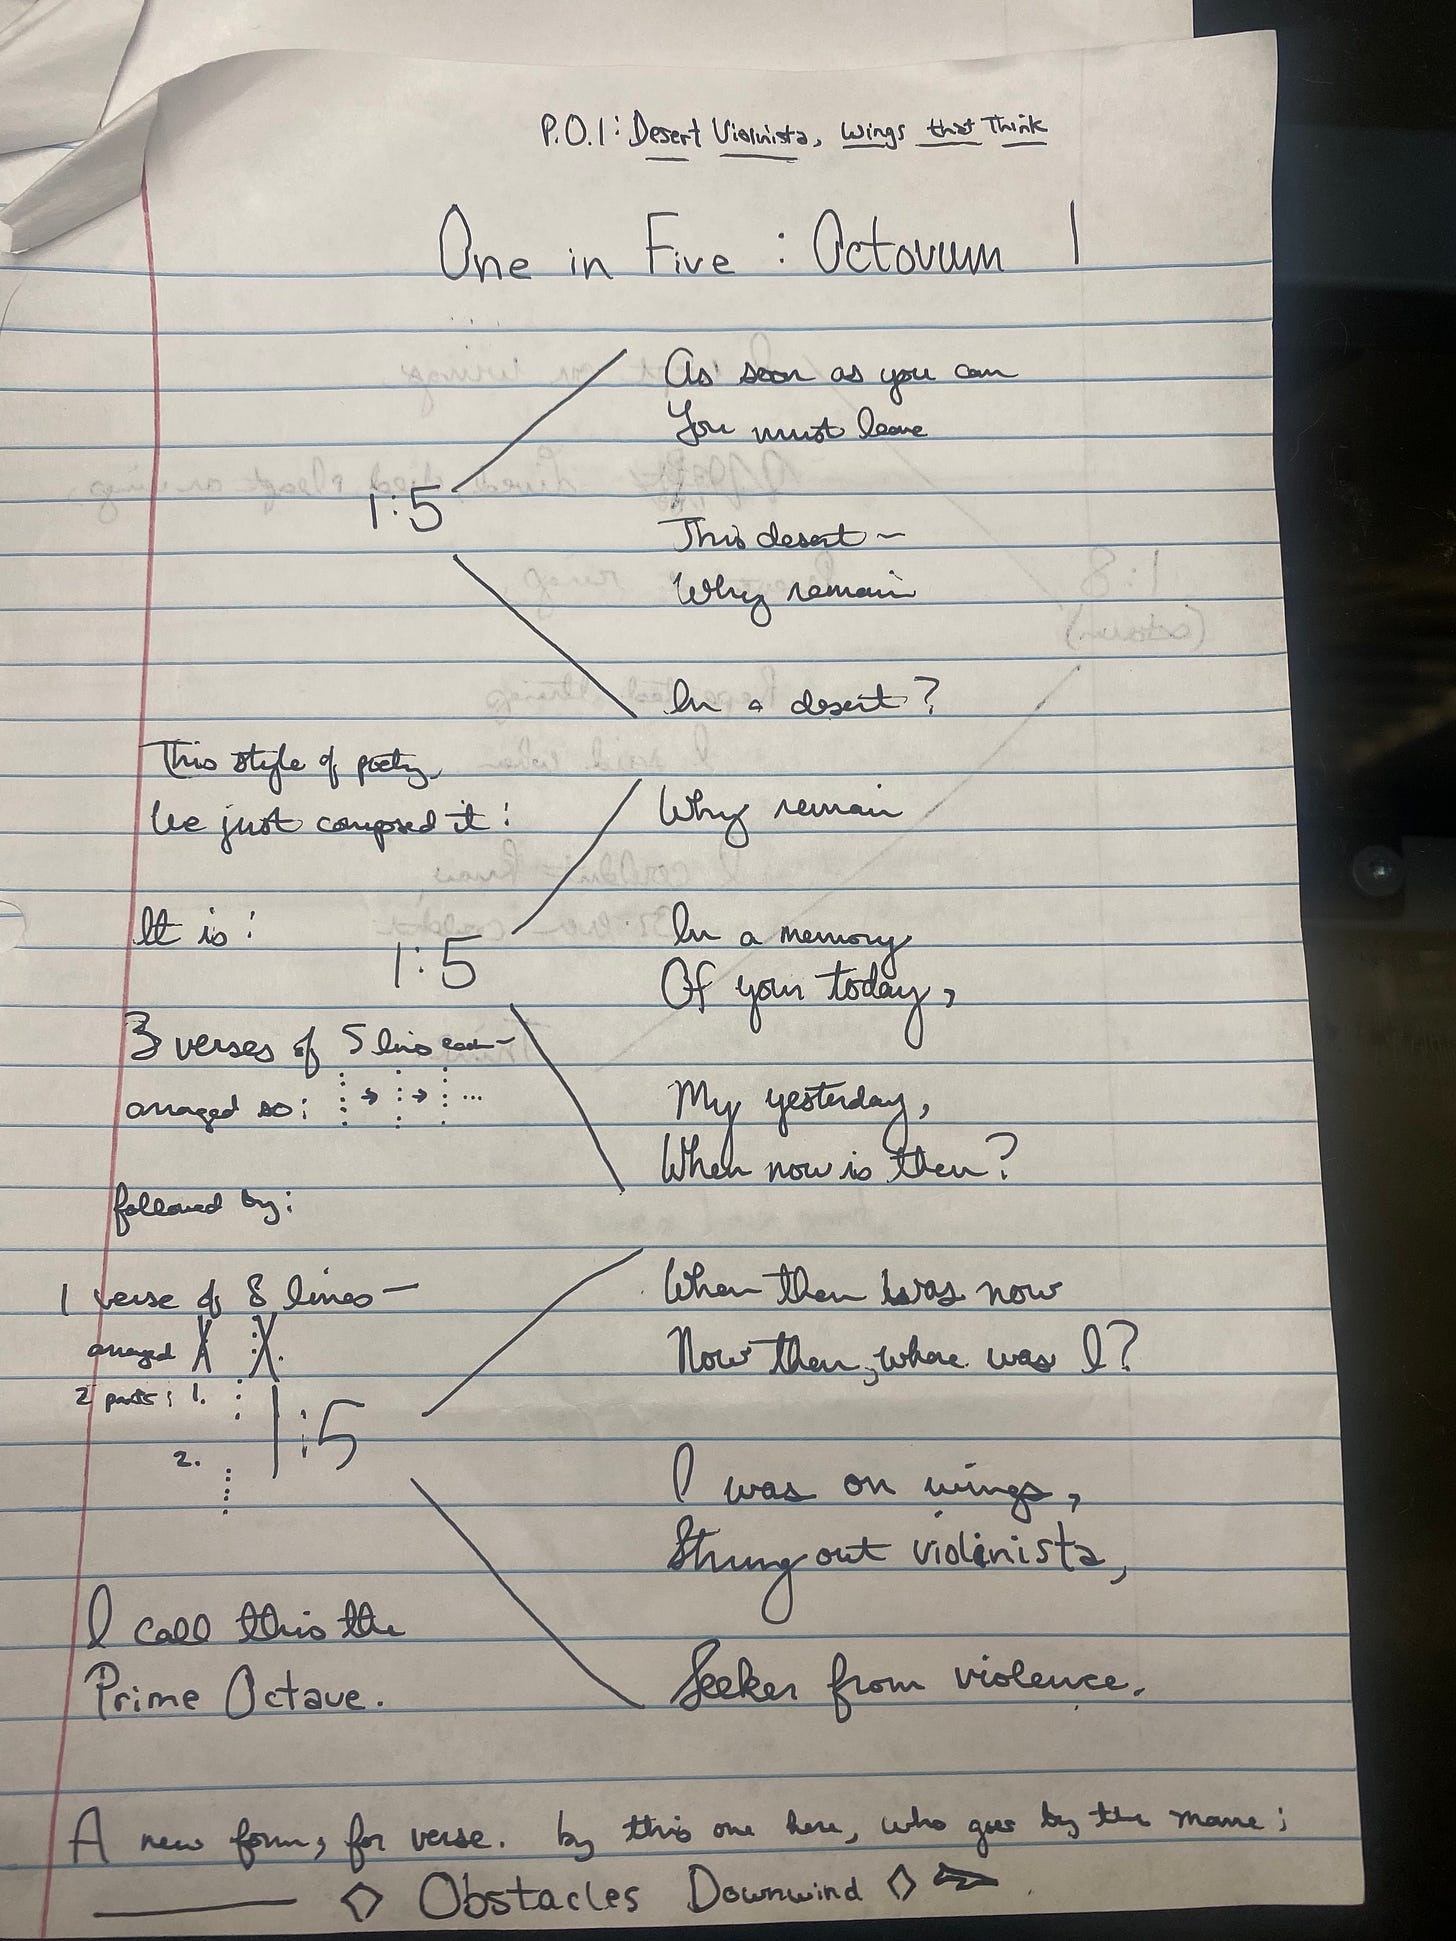 P.O.1: Desert Violinista, Wings that Think
One in Five : Octovum 1
As soon as you can
You must leave
1:5
This desert —
Why remain
In a desert?
This style of poetry
We just composed it:
It is:
3 verses of 5 lines each —
arranged so:
followed by:
1 verse of 8 lines —
arranged
2 parts: 1.
2.
I call this the
Prime Octave.
1:5
Why remain
In a memory
Of your today,
My yesterday,
When now is then?
1:5
When then was now
Now then, where was I?
I was on wings,
Strung out violinista,
Seeker from violence.
A new form, for verse. by this one here, who goes by the name:
Obstacles Downwind